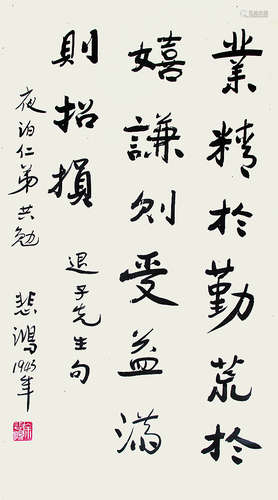 業精於勤荒於
嬉謙則受益滿
則招損
退子先生句
夜泊仁弟共勉
悲鴻1945年